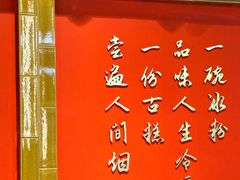 一碗冰粉
品味人生冷
一份古糕
尝遍人间烟